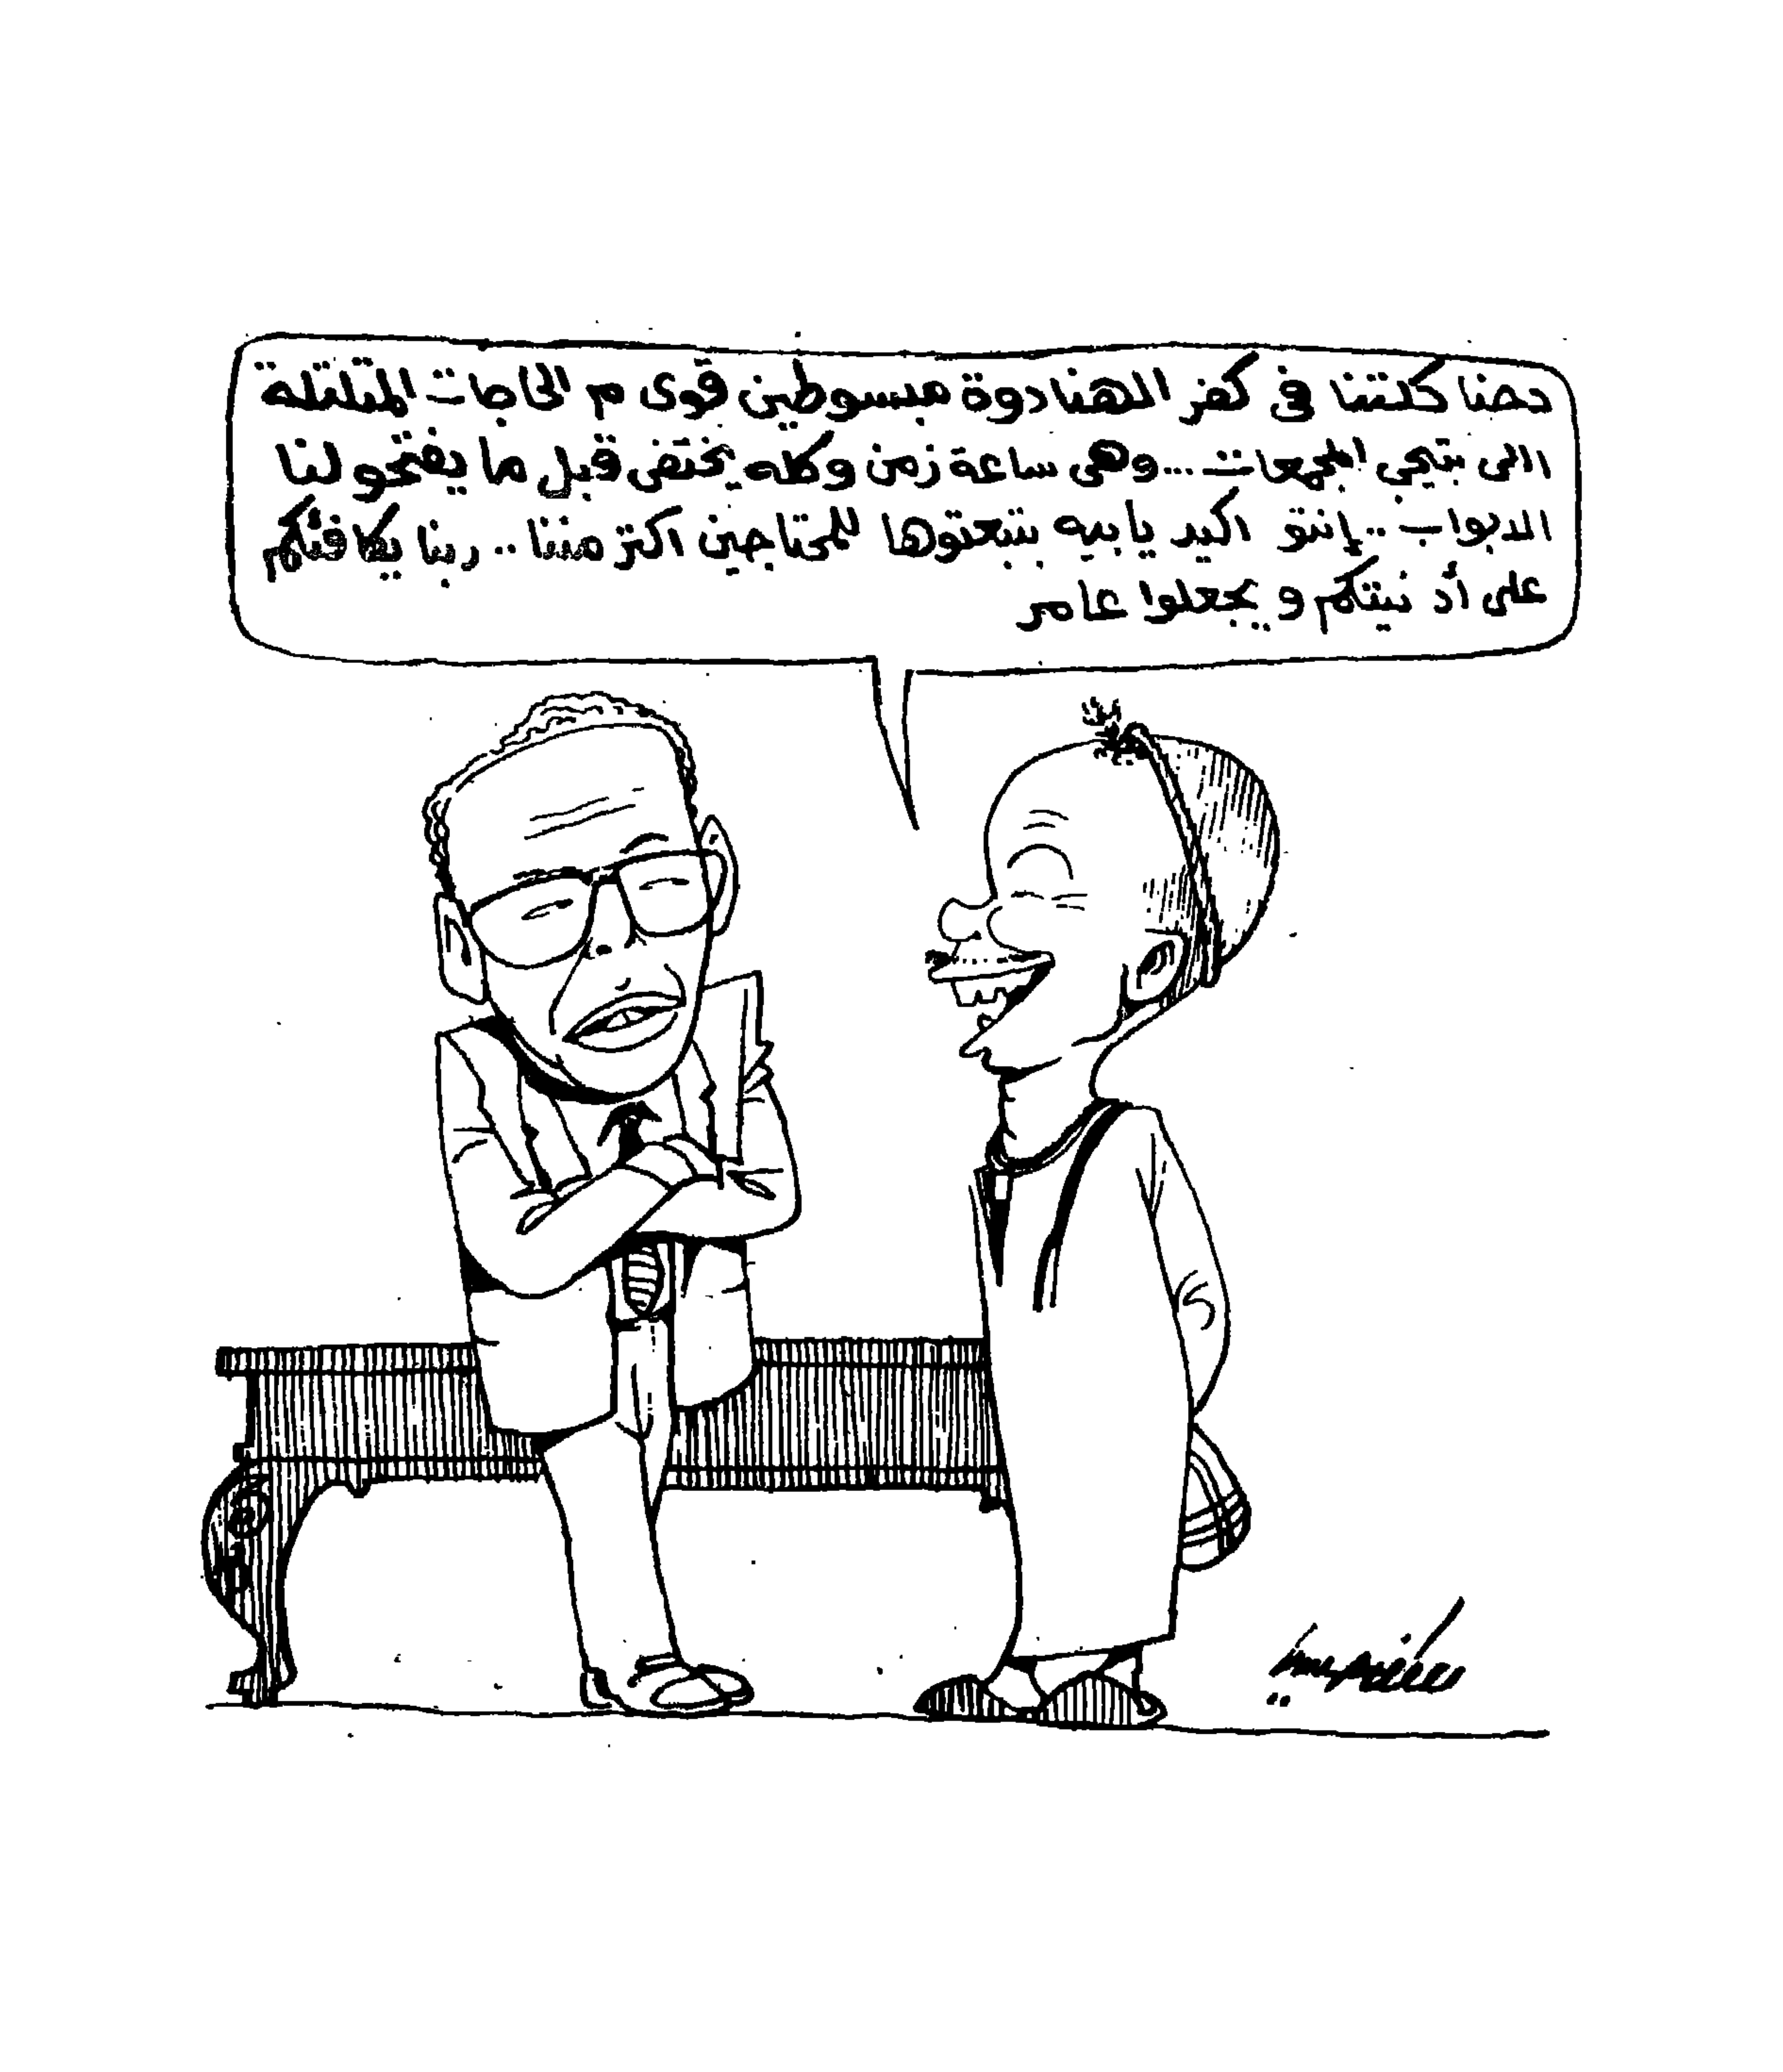 دحنا كلتنا فى كفر الهنادوة مبسوطين قوى م الحاجات المتلتلة
اللى بتيجى المجمعات... وهى ساعة زمن وكله يختفى قبل ما يفتحو لنا
الابواب.. إنتو اكيد يا بيه بتبعتوها للمحتاجين اكتر مننا.. ربنا يكافئكم
على أد نيتكم و يجعلوا عامر